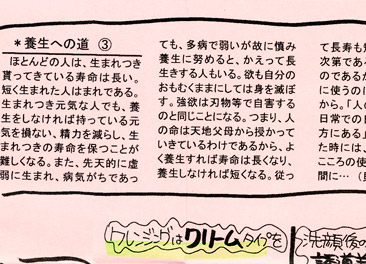 ＊養生への道 ③
ほとんどの人は、生まれつき
貰ってきている寿命は長い。
短く生まれた人はまれである。
生まれつき元気な人でも、養
生をしなければ持っている元
気を損ない、精力を減らし、生
まれつきの寿命を保つことが
難しくなる。また、先天的に虚
弱に生まれ、病気がちであっ
ても、多病で弱いが故に慎み
養生に努めると、かえって長
生きする人もいる。欲も自分の
おもむくままにしては身を滅ぼ
す。強欲は刃物等で自害する
のと同じことになる。つまり、人
の命は天地父母から授かって
いきているわけであるから、よ
く養生すれば寿命は長くなり、
養生しなければ短くなる。従っ
て長寿も短
次第である
のであるが
に使うのに
から。「人の
日常での日
方にある」
た時には、
こころの使
間に…（貝
クレンジングはクリームタイプを
洗顔後の